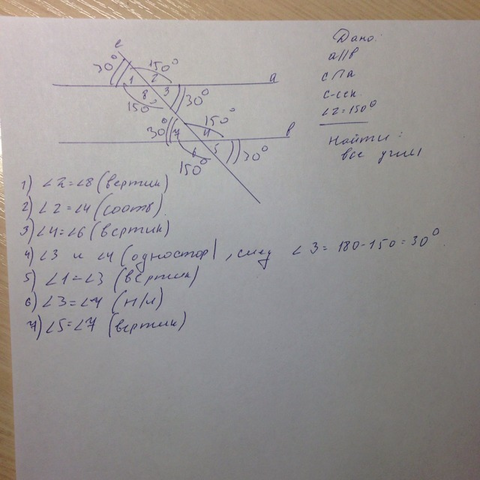 Дано:
a∥в
c∩a
c-сек.
∠2=150°
Найти:
все углы
c
30° 150°
1 2 a
8 3
150° 30°
30° 150° в
7 4
6 5
150° 30°
1) ∠2=∠8 (вертик)
2) ∠2=∠4 (соотв)
3) ∠4=∠6 (вертик)
4) ∠3 и ∠4 (одностор), след ∠3=180-150=30°
5) ∠1=∠3 (вертик)
6) ∠3=∠7 (н/л)
7) ∠5=∠7 (вертик)